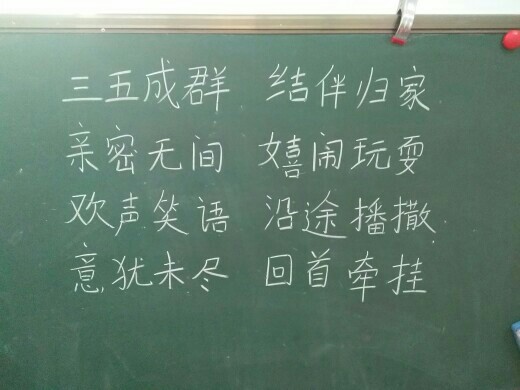 三五成群 结伴归家
亲密无间 嬉闹玩耍
欢声笑语 沿途播撒
意犹未尽 回首牵挂